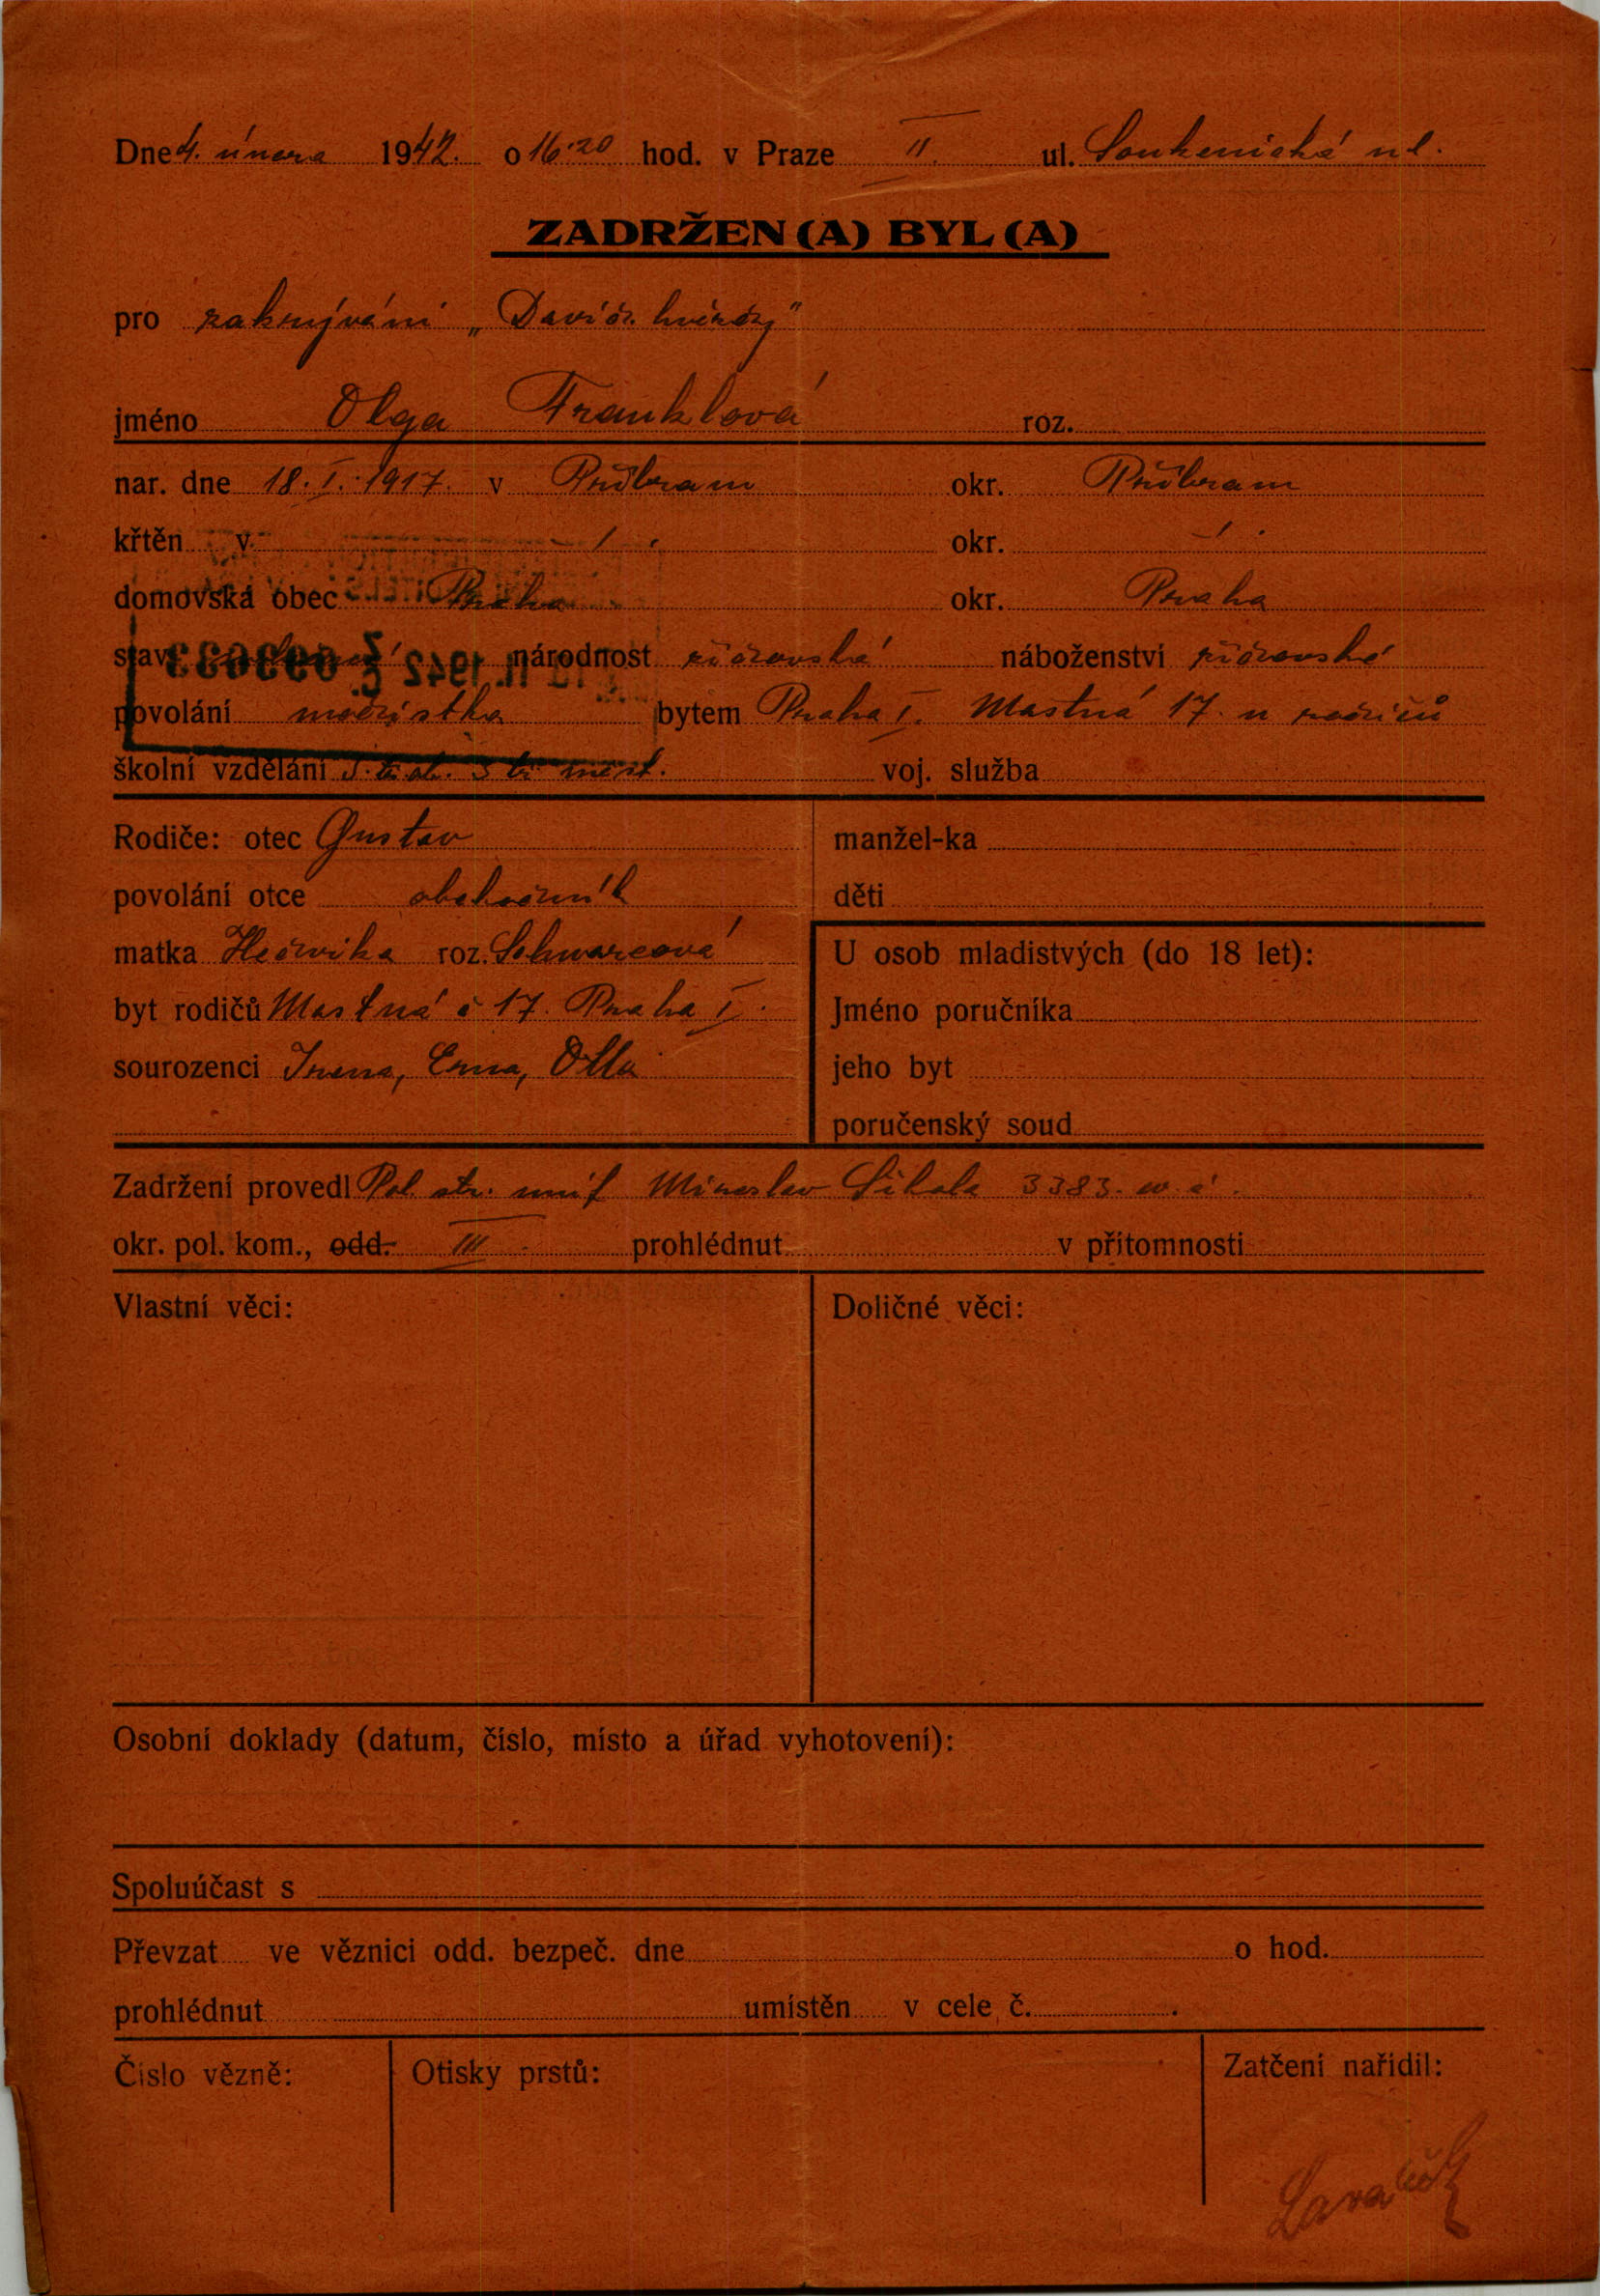 Dne 4. února 1942. o 16.20 hod. v Praze II. ul. Soukenická ul.
ZADRŽEN(A) BYL(A)
pro zakrývání „David. hvězdy"
jméno Olga Franklová roz.
nar. dne 18. I. 1917. v Příbram okr. Příbram
křtěn v okr.
domovská obec Praha okr. Praha
stav národnost židovská náboženství židovské
povolání modistka bytem Praha I. Mastná 17. u rodičů
školní vzdělání 5. tř. ob. 3 tř měšt. voj. služba
Rodiče: otec Gustav
manžel-ka
povolání otce obchodník
děti
matka Hedvika roz. Schwarcová
U osob mladistvých (do 18 let):
byt rodičů Mastná č 17. Praha I.
Jméno poručníka
sourozenci Irena, Erna, Otta
jeho byt
poručenský soud
Zadržení provedl Pol. str. unif Miroslav 3383.
okr. pol. kom., odd. III. prohlédnut v přítomnosti
Vlastní věci:
Doličné věci:
Osobní doklady (datum, číslo, místo a úřad vyhotovení):
Spoluúčast s
Převzat ve věznici odd. bezpeč. dne o hod.
prohlédnut umístěn v cele č. .
Číslo vězně:
Otisky prstů:
Zatčení nařídil: